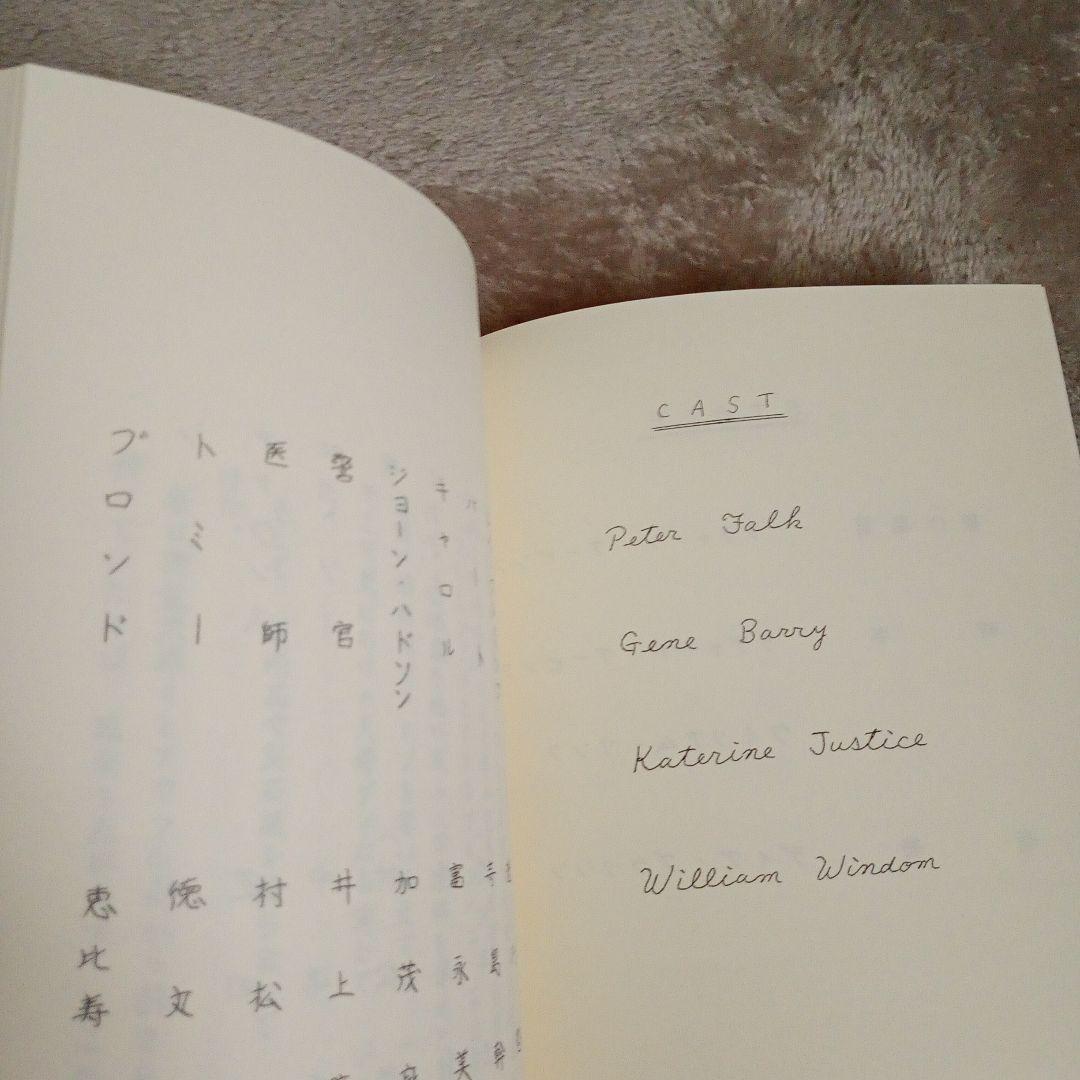 CAST
Peter Falk
Gene Barry
Katerine Justice
William Windom
キャロル 富永美
ジョーン・ハドソン 加茂
警官 井上
医師 村松
トミー 徳丸
ブロンド 恵比寿